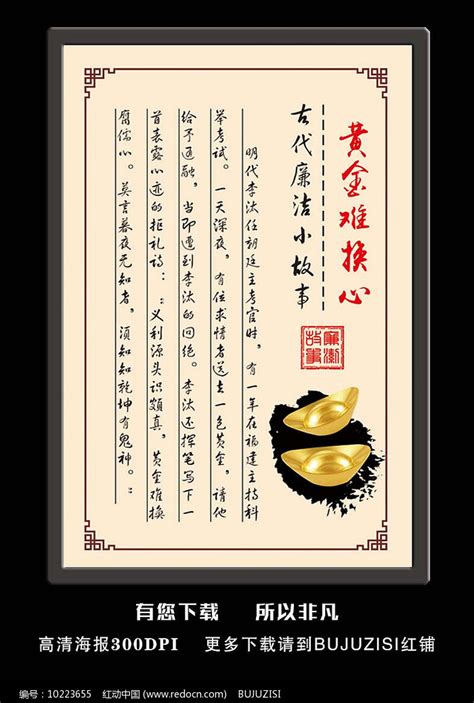 黄金难换心
古代廉洁小故事
明代李汰任朝廷主考官时，有一年在福建主持科
举考试。一天深夜，有位求情者送去一包黄金，请他
给予通融，当即遭到李汰的回绝。李汰还挥笔写下一
首表露心迹的拒礼诗：：义利源头识颇真，黄金难换
腐儒心。莫言暮夜无知者，须知知乾坤有鬼神。
有您下载 所以非凡
高清海报300DPI 更多下载请到BUJUZISI红铺
编号：10223655 红动中国 (www.redocn.com) BUJUZISI